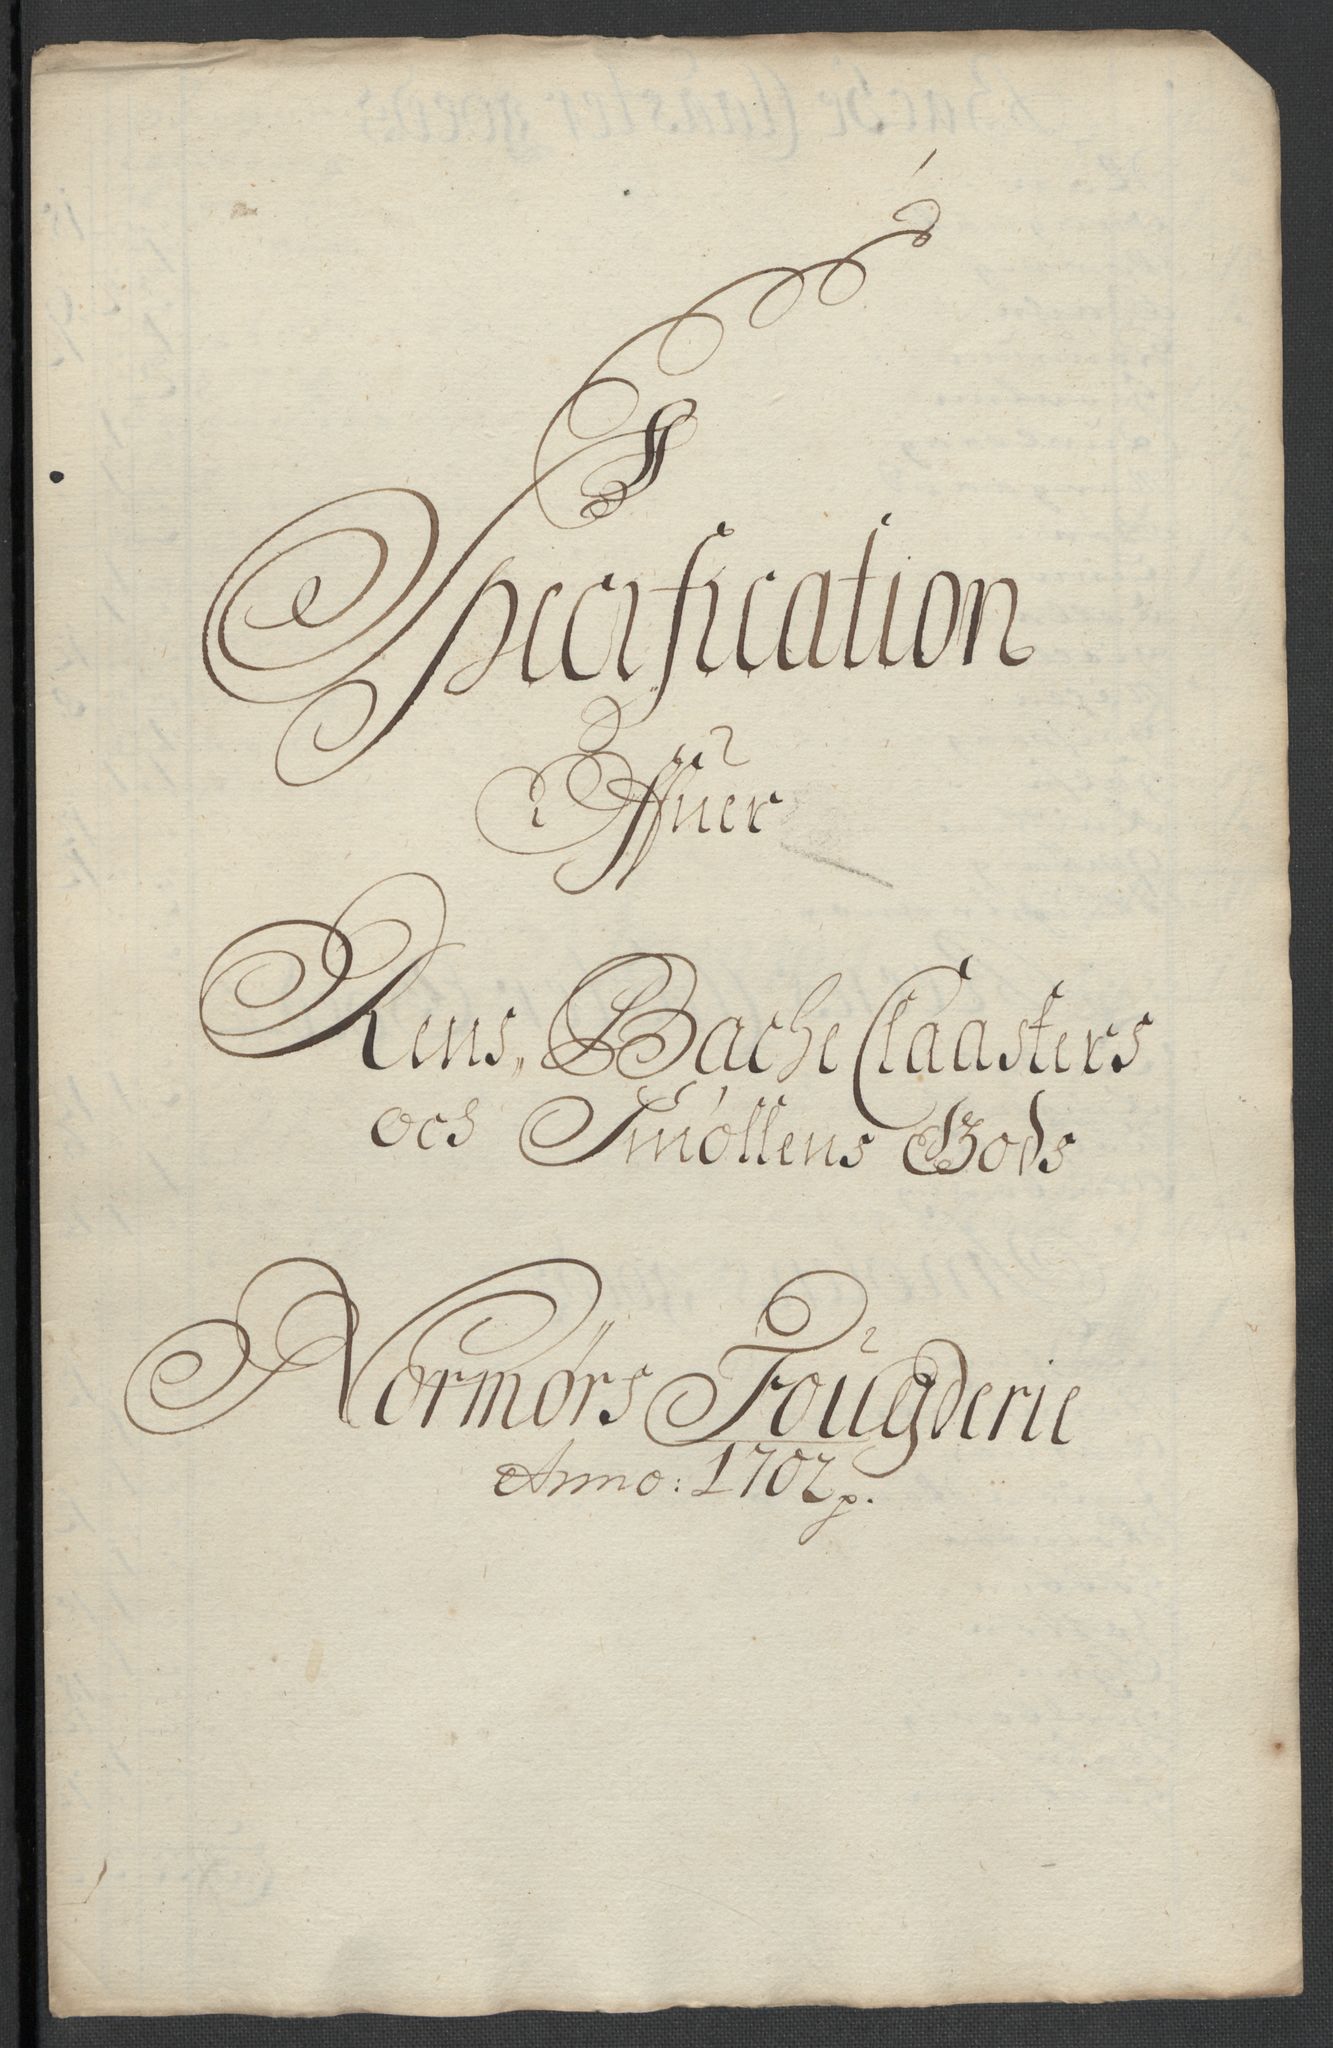 Specification
Offuer
Rens, Bache Claasters
och Smøllens Gods
Normørs Fougderie
Anno: 1702